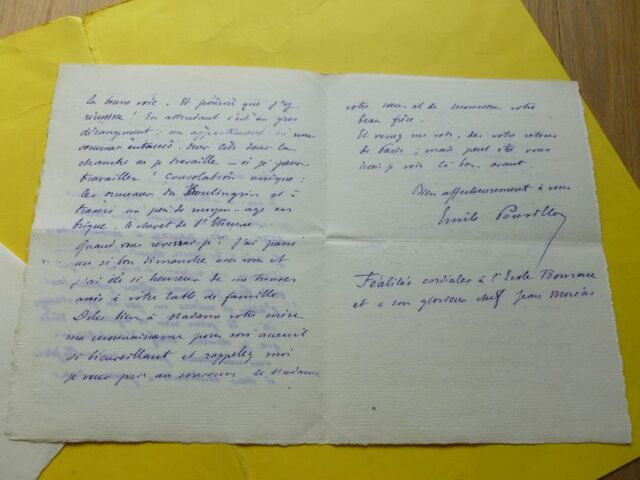 la bonne voie. Et pourvu que j'y
réussisse ! En attendant c'est un gros
dérangement : un appartement où nous
sommes entassés, deux lits dans la
chambre où je travaille — si je peux
travailler ! Consolation unique :
les ormeaux du Boulingrin et à
travers un peu de moyen-age en
brique, le de St Etienne.
Quand vous reverrai-je ? J'ai passé
un si bon dimanche avec vous et
j'ai été si heureux de me trouver
assis à votre table de famille
Dites bien à Madame votre mère
ma reconnaissance pour son accueil
si bienveillant et rappelez moi
je vous prie au souvenir de Madame
votre sœur et de monsieur votre
beau frère.
Et venez me voir, dès votre retour
de Paris à mais peut être vous
irai-je voir là-bas avant
Bien affectueusement à vous
Emile Pouvillon
Féalités cordiales à l'Ecole Romane
et à son glorieux chef Jean Moréas